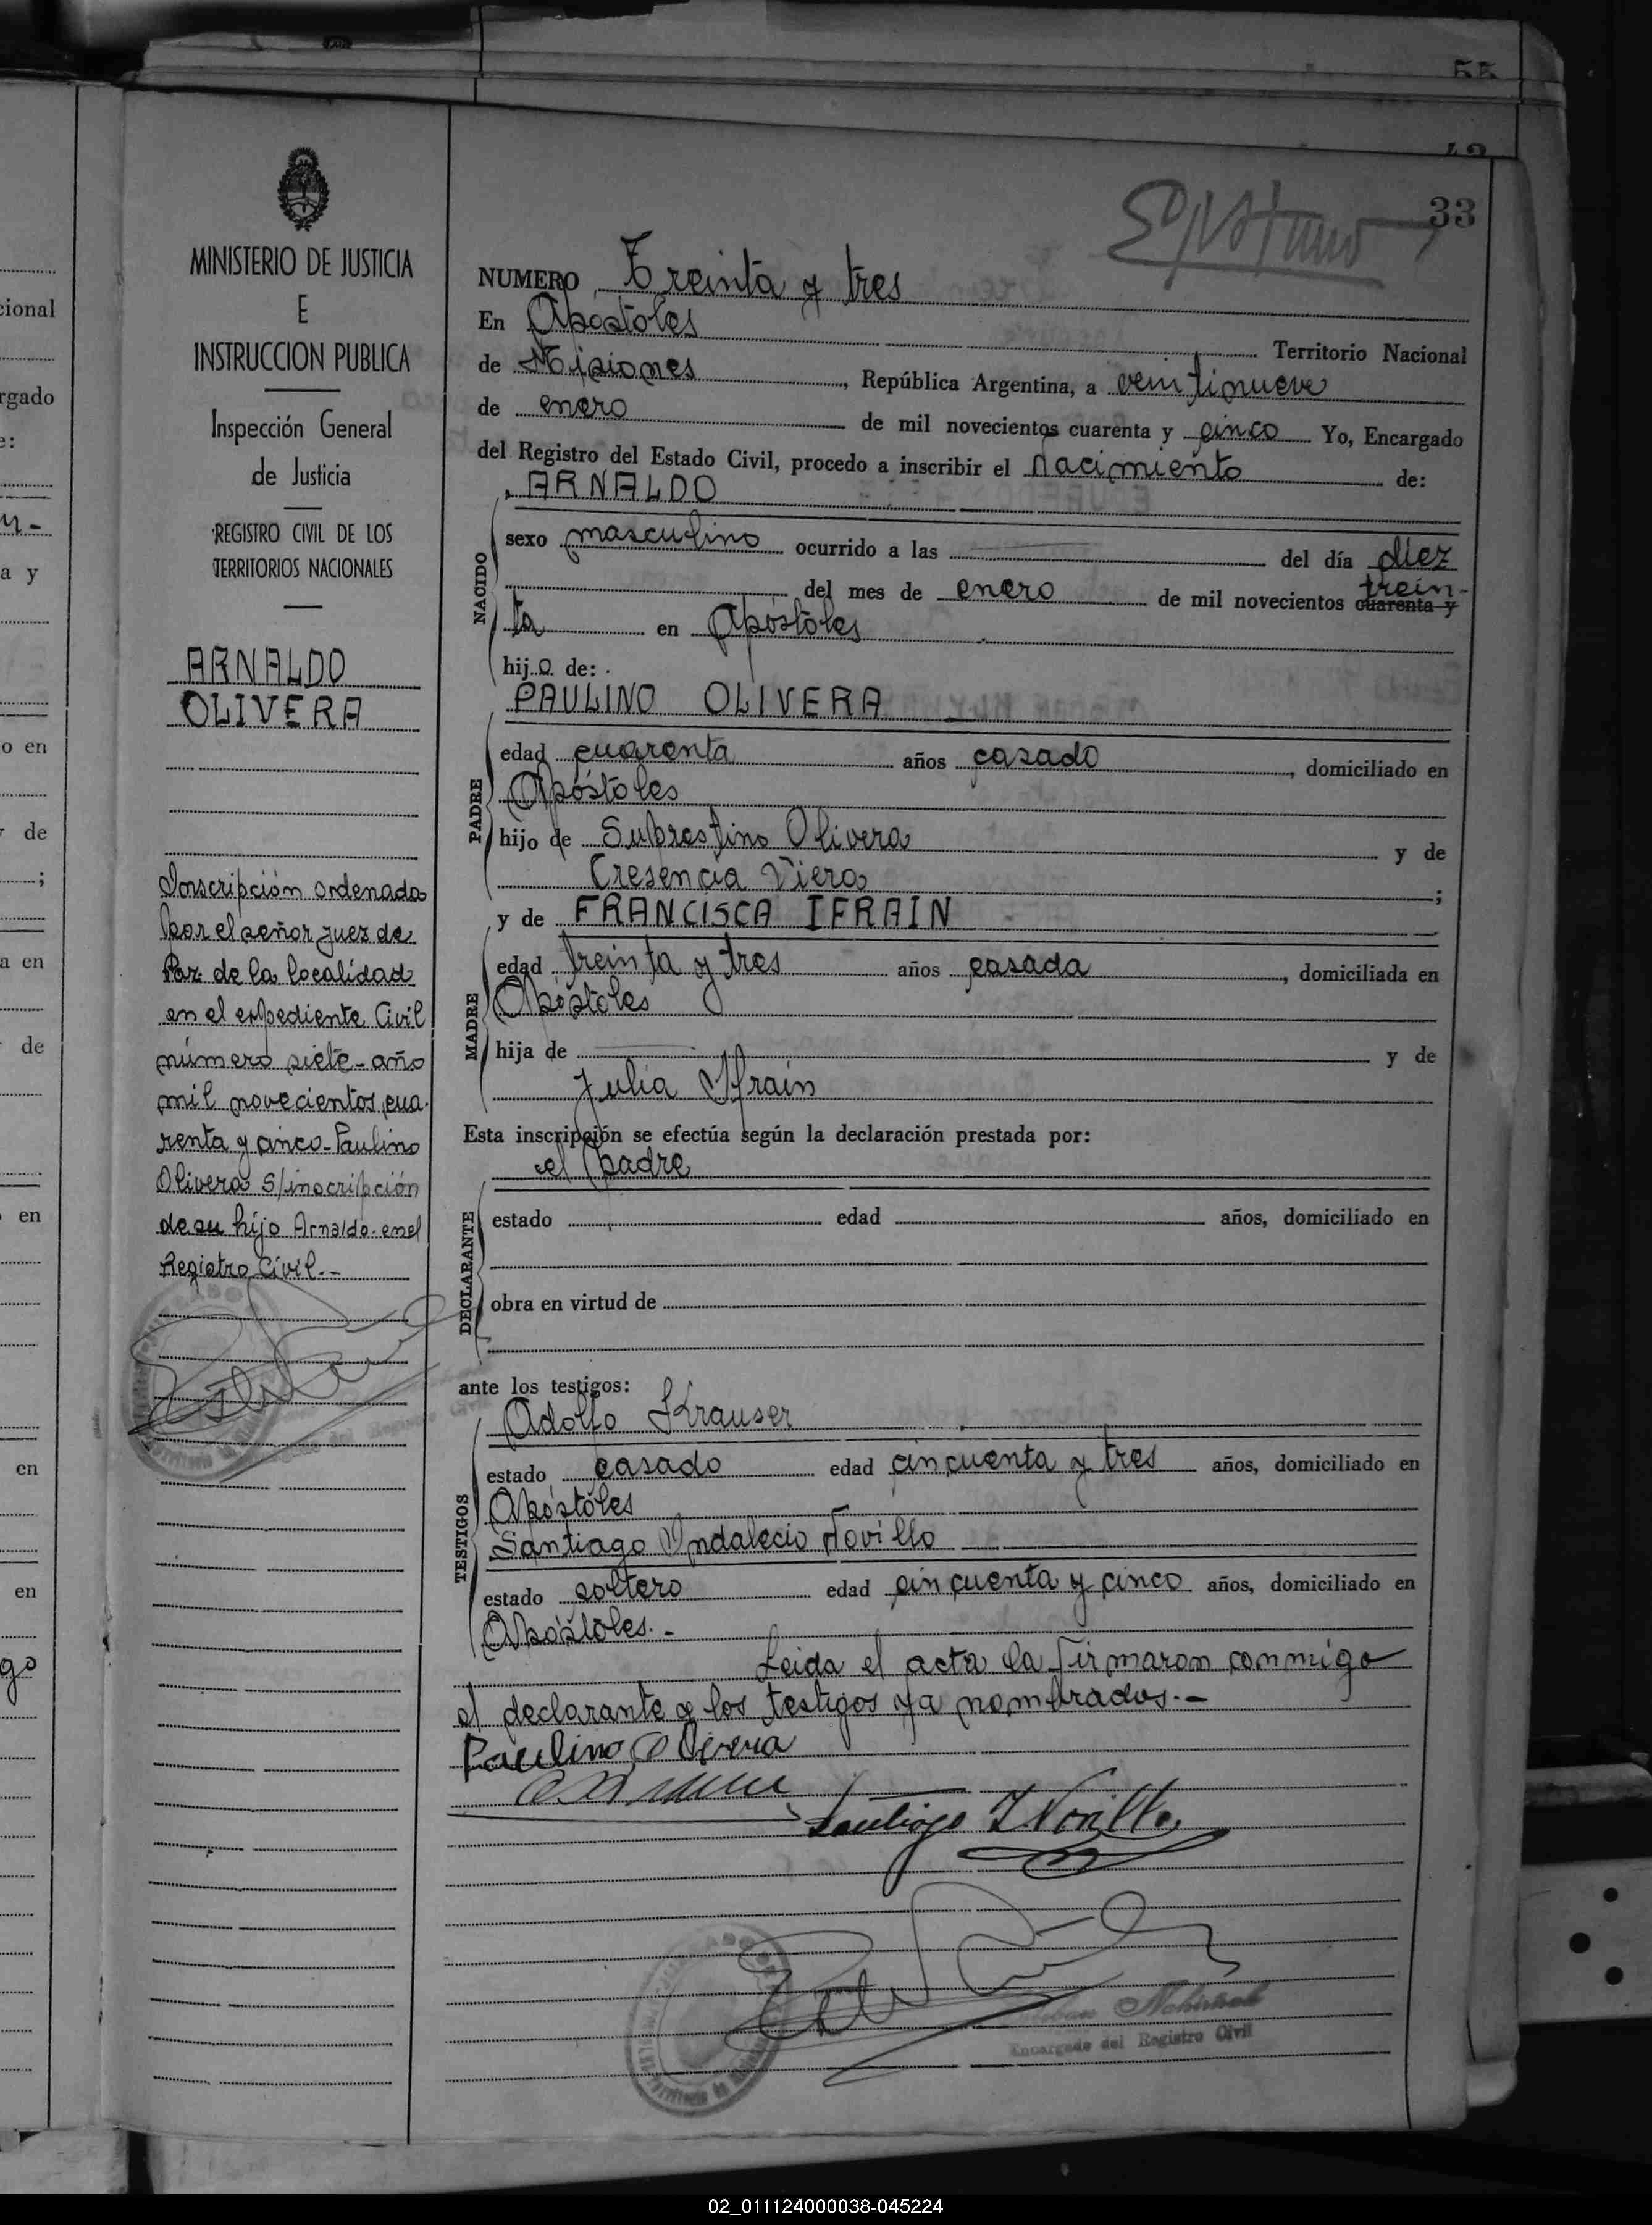 55
33
MINISTERIO DE JUSTICIA
E
INSTRUCCION PUBLICA
Inspección General
de Justicia
REGISTRO CIVIL DE LOS
TERRITORIOS NACIONALES
ARNALDO
OLIVERA
Inscripción ordenada
por el señor juez de
Paz de la localidad
en el expediente Civil
número siete-año
mil novecientos cua-
renta y cinco-Paulino
Olivera S/inscripción
de su hijo Arnaldo en el
Registro Civil.-
NUMERO Treinta y tres
En Apostoles Territorio Nacional
de Misiones, República Argentina, a veintinueve
de enero de mil novecientos cuarenta y cinco Yo, Encargado
del Registro del Estado Civil, procedo a inscribir el Nacimiento de:
ARNALDO
NACIDO
sexo masculino ocurrido a las del día diez
del mes de enero de mil novecientos cuarenta y trein-
ta en Apóstoles
hijo de:
PAULINO OLIVERA
PADRE
edad cuarenta años casado, domiciliado en
Apóstoles
hijo de Olivera y de
Cresencia Viera;
y de FRANCISCA IFRAIN
MADRE
edad treinta y tres años casada, domiciliada en
Apóstoles
hija de y de
Julia Ifrain
Esta inscripción se efectúa según la declaración prestada por:
el padre
DECLARANTE
estado edad años, domiciliado en
obra en virtud de
ante los testigos:
TESTIGOS
Adolfo Krauser
estado casado edad cincuenta y tres años, domiciliado en
Apóstoles
Santiago Indalecio Novillo
estado soltero edad cincuenta y cinco años, domiciliado en
Apóstoles.-
Leida el acta la firmaron conmigo
el declarante y los testigos ya nombrados.-
Paulino Olivera
Santiago I Novillo
Encargado del Registro Civil
02_011124000038-045224